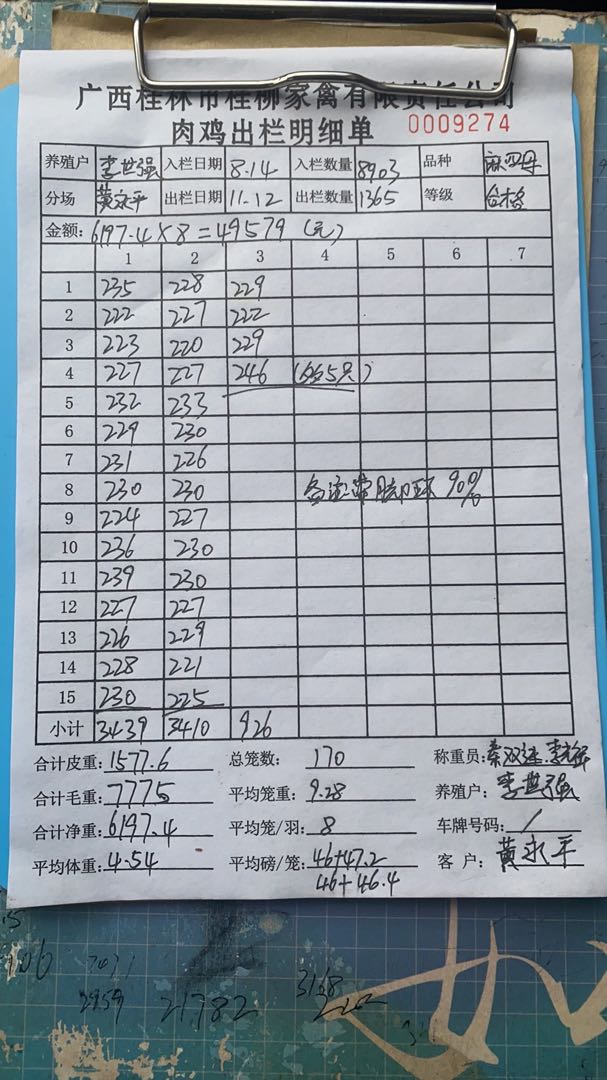 广西桂林市桂柳家禽有限责任公司
肉鸡出栏明细单 0009274
养殖户 李世强 入栏日期 8.14 入栏数量 8903 品种 麻四母
分场 黄永平 出栏日期 11.12 出栏数量 1365 等级 合格
金额: 6197.4×8=49579 (元)
1 2 3 4 5 6 7
1 235 228 229
2 222 227 222
3 223 220 229
4 227 227 246 5只)
5 232 233
6 229 230
7 231 226
8 230 230 备注:带脚环 90%
9 224 227
10 236 230
11 239 230
12 227 227
13 226 229
14 228 221
15 230 225
小计 3439 3410 926
合计皮重: 1577.6 总笼数: 170 称重员: 秦双
合计毛重: 7775 平均笼重: 9.28 养殖户: 李世强
合计净重: 6197.4 平均笼/羽: 8 车牌号码: /
平均体重: 4.54 平均磅/笼: 46+47.2 客户: 黄永平
46+46.4
2959 21782 3168